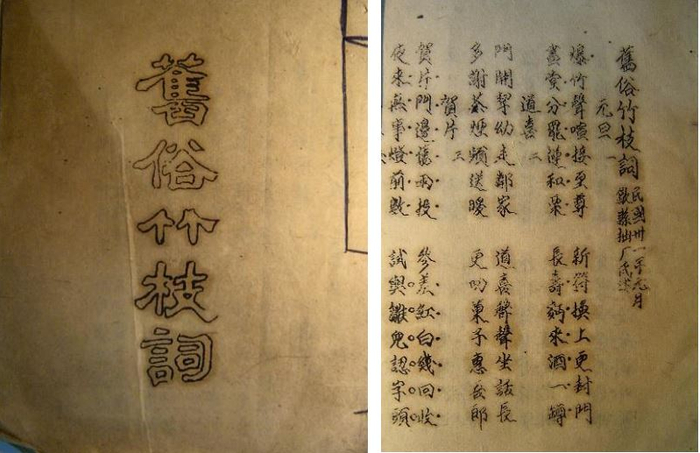 舊俗竹枝詞
舊俗竹枝詞 民國卅一年元月
歙縣拙厂氏
元旦 一
爆竹聲喧接至尊 新符換上更封門
盡嘗分罷 和栗 長壽 來酒一罇
道喜 二
門開挈幼走鄰家 道喜聲聲坐話長
多謝茶煙頻送暖 更叨菓子惠兒郎
賀片 三
賀片門邊 兩投 參差紅白幾回收
夜來無事燈前數 試與 兒認字頭